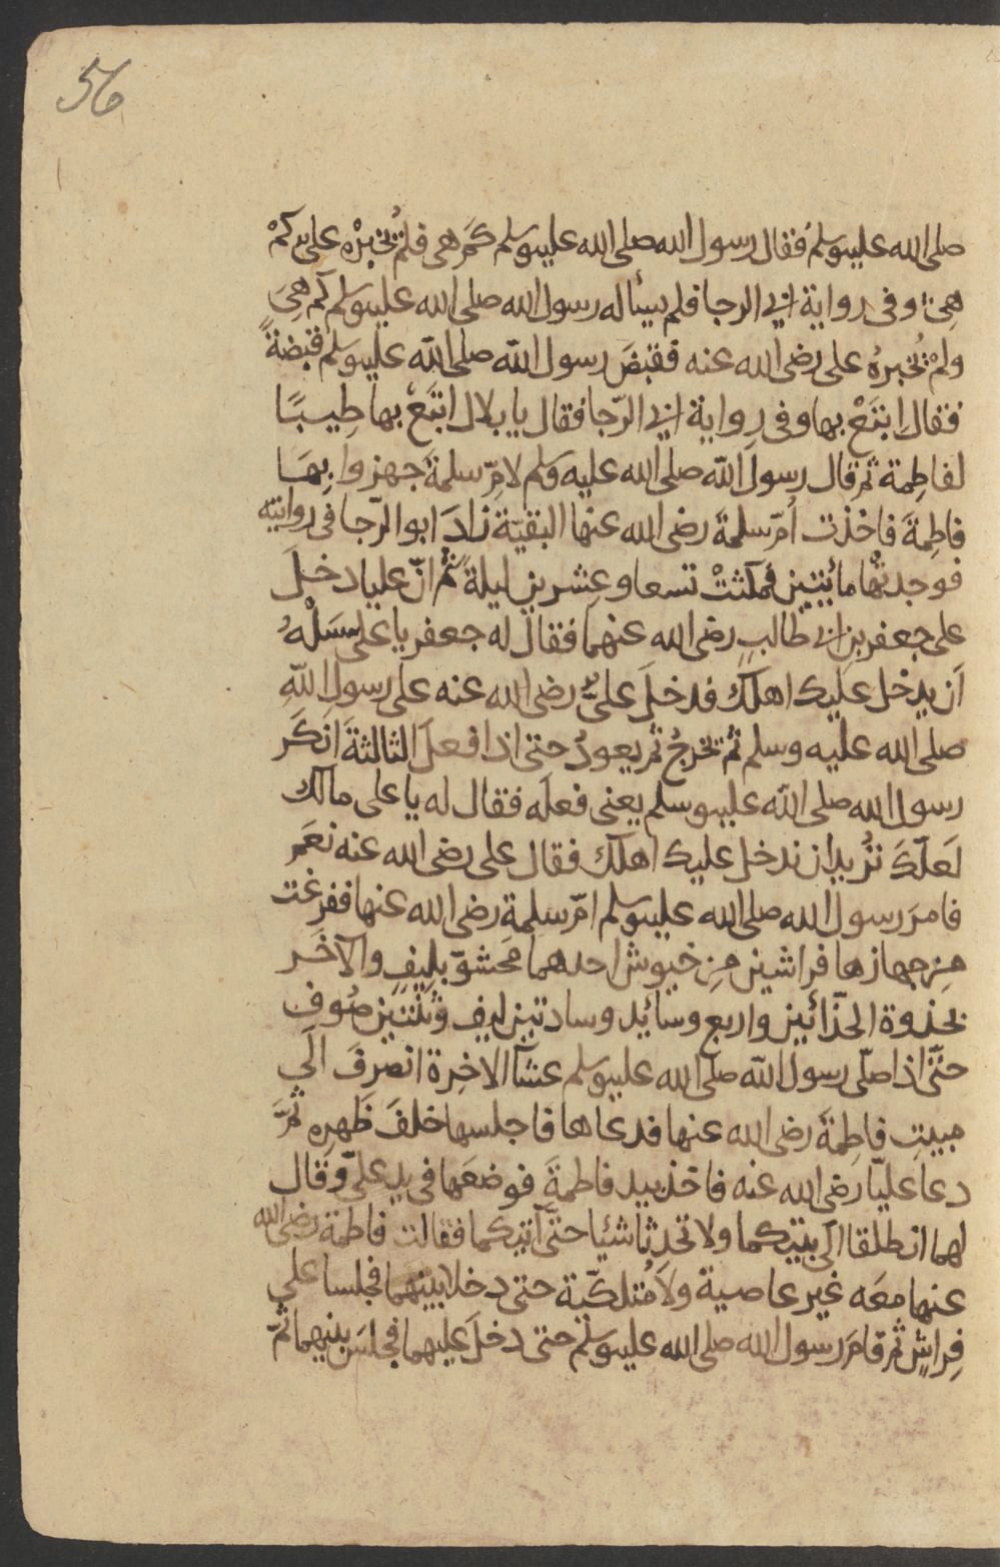 56
صلى الله عليه وسلم فقال رسول الله صلى الله عليه وسلم كم هى فلم يُخْبِرْه على كمْ
هِىَ وفى رواية ابى الرجا فلم يسأله رسول الله صلى الله عليه وسلم كم هِىَ
ولمْ يُخْبِرهُ على رضى الله عنه فقبَضَ رسول الله صلى الله عليه وسلم قبضةً
فقال ابتَعْ بها وفى رواية ابى الرّجا فقال يا بلال ابتَعْ بها طِيبًا
لفاطِمة ثم قال رسول الله صلى الله عليه وسلم لامّ سلمةَ جهزوا بِهَا
فاطِمةَ فاخذت اُمّ سلمةَ رضى الله عنها البقيّة زادَ ابو الرّجا فى روايته
فوجدتْها مأئتين فمكثتْ تسعا وعِشرين ليلةً ثُمّ انّ عليا دخلَ
على جعفر بن ابى طالبٍ رضى الله عنهما فقال له جعفر يا على سَلْهُ
اَن يدخل عليك اهلك فدخلَ علىٌّ رضى الله عنه على رسول اللهِ
صلى الله عليه وسلم ثم يخرجُ ثم يعودُ حتى اذا فعلَ الثالثةَ انكَر
رسول الله صلى الله عليه وسلم يعنى فعلَه فقال له يا على مالك
لَعلّكَ تُريد ان ندخل عليك اهلك فقال على رضى الله عنه نعَم
فامرَ رسول الله صلى الله عليه وسلم امّ سلمةَ رضى الله عنها ففرغت
مِن جهازها فِراشين مِن خيوش احدهما محشوّ بلِيفٍ والآخر
بحذوة الحذّائين واربع وسائد وسادتين ليف وثنتين صُوفٍ
حتّى اذا صلّى رسول الله صلى الله عليه وسلم عشآ الاخِرة انصرفَ الى
بيتِ فاطِمةَ رضى الله عنها فدعاها فاجلسها خلفَ ظهرِه ثمّ
دعا عليّا رضى الله عنه فاخذ بيد فاطمةَ فوضعَها فى يد علىّ وقال
لهما انطلقا الى بيتكما ولا تحدثا شيئا حتّى آتيكما فقالت فاطمة رضى الله
عنها معَه غير عاصية ولا مُتلكّية حتى دخلا بيتهما فجلسا على
فِراشٍ ثم قامَ رسول الله صلى الله عليه وسلم حتى دخلَ عليهما فجلسَ بينهما ثمّ